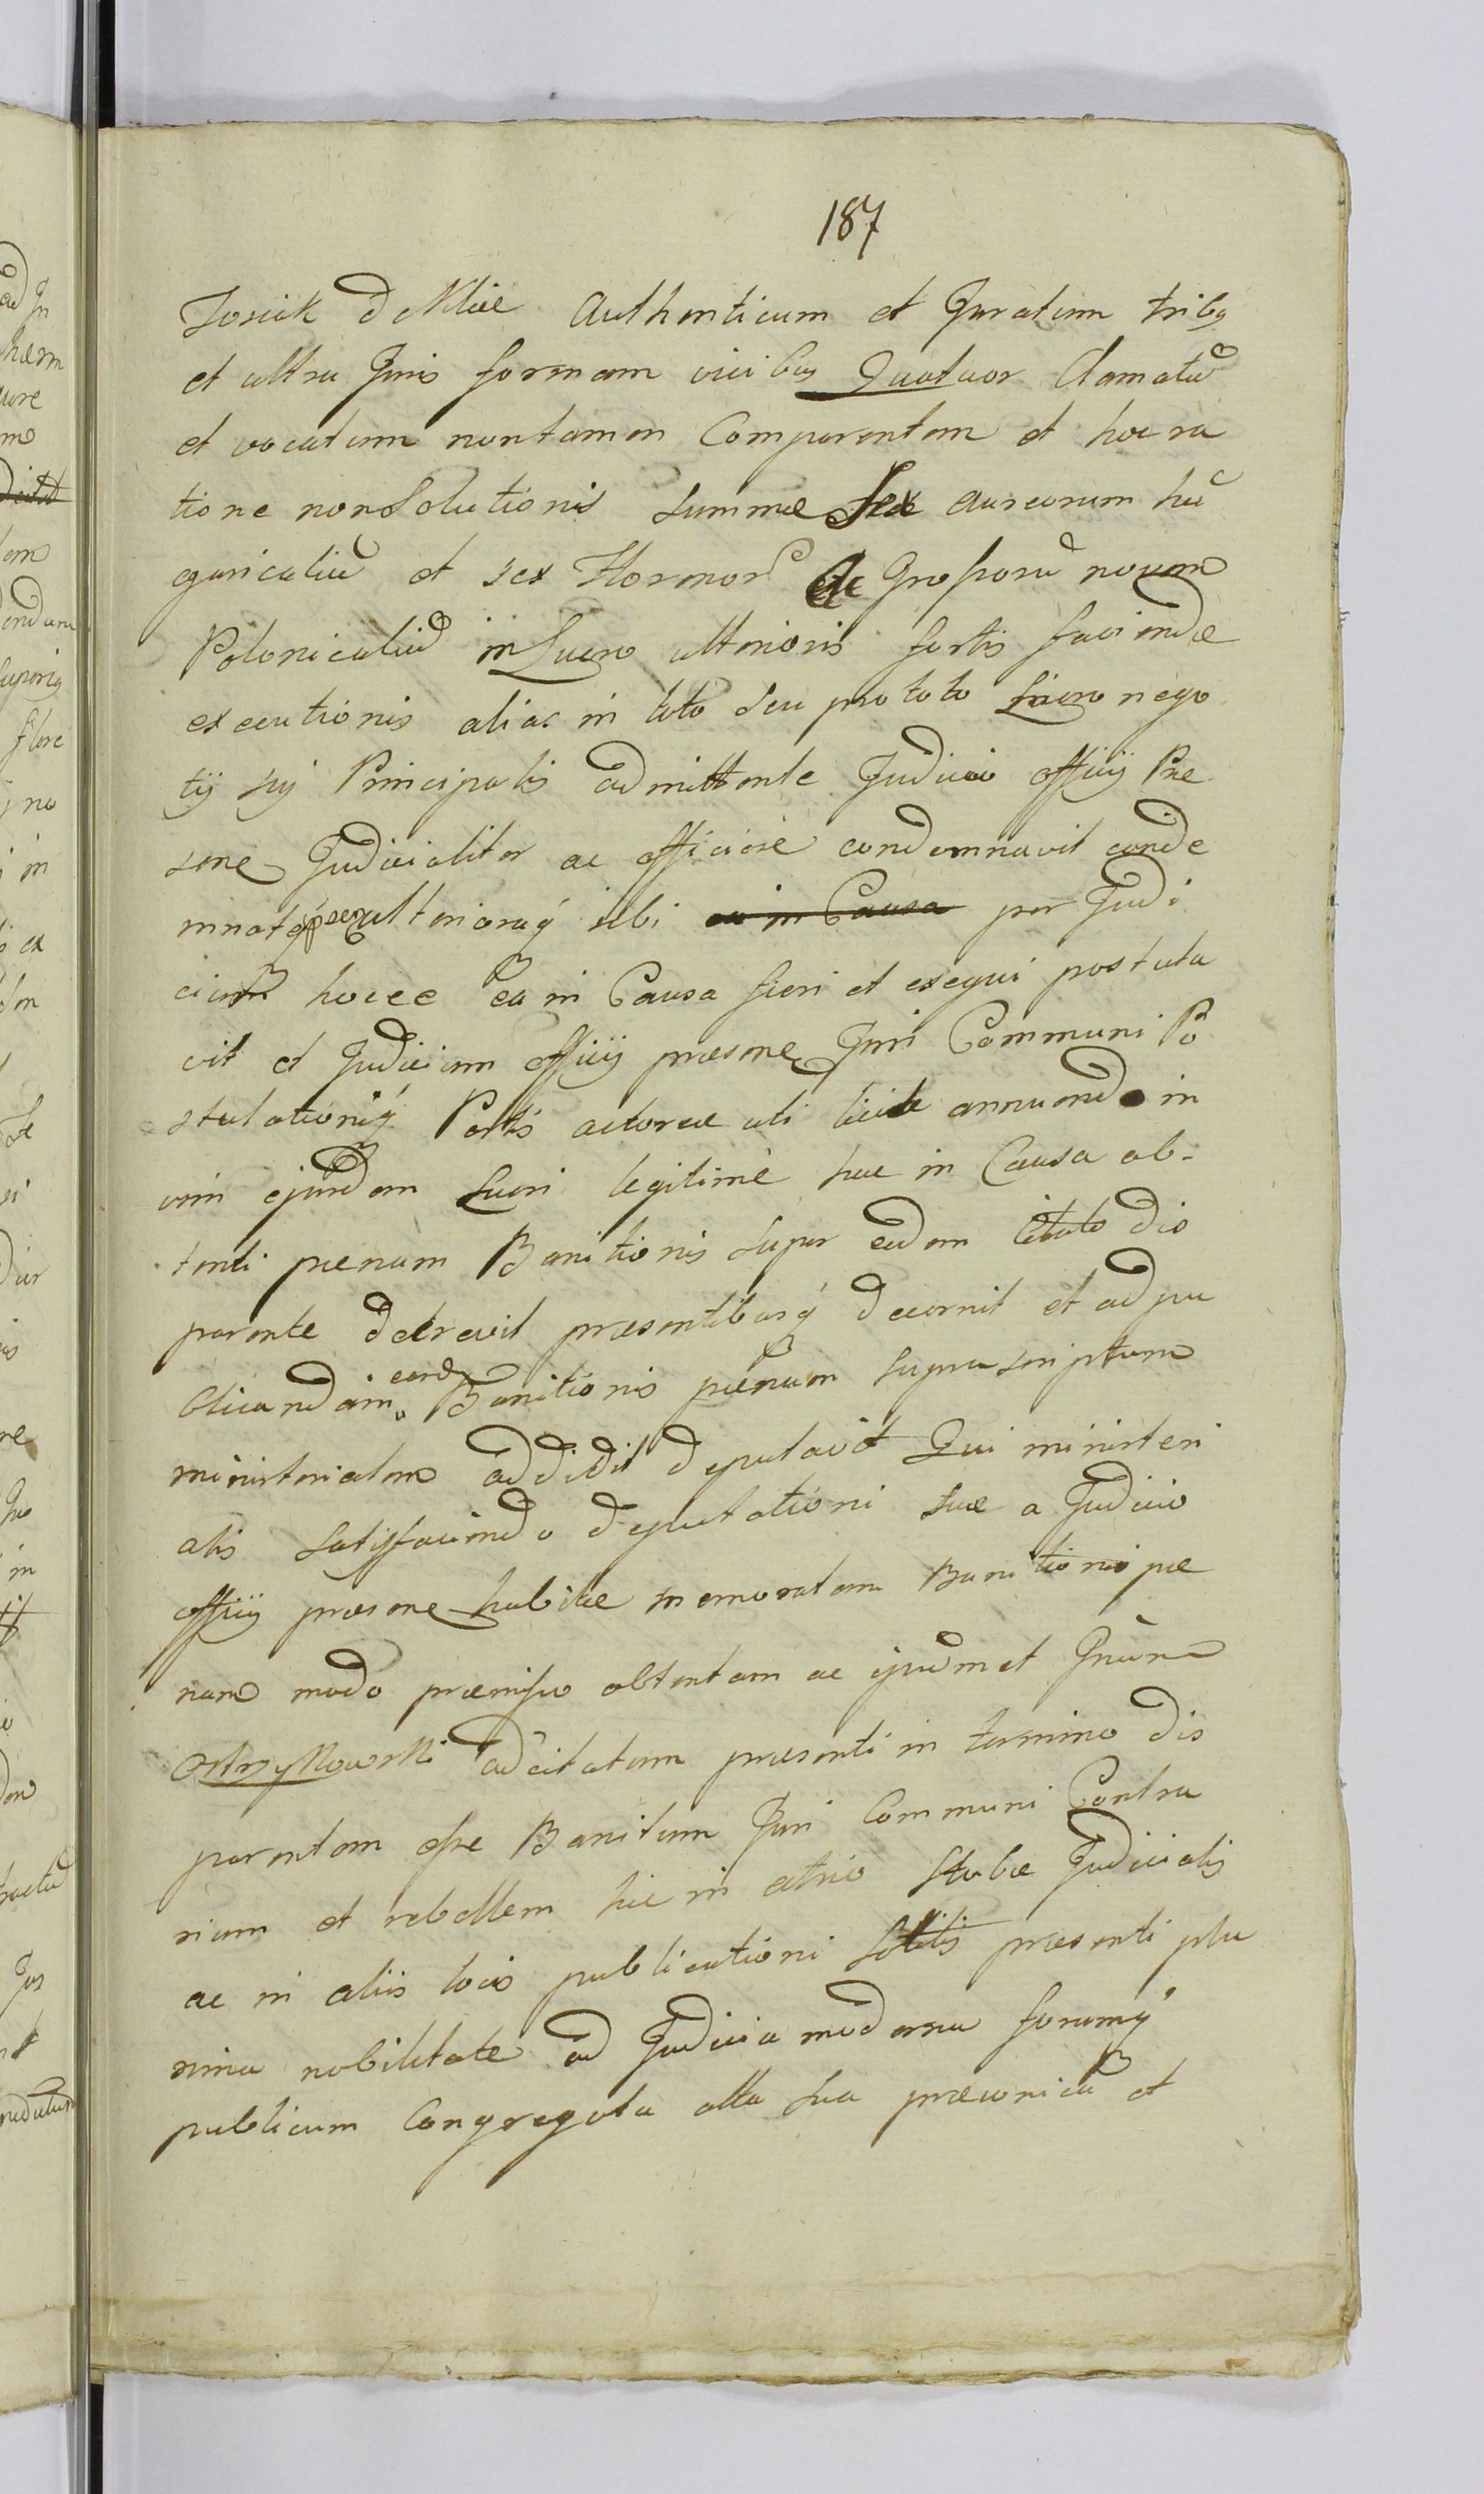 187
Josiek de Mlice Authenticum et Juratum tribq
et ultra Juris formam vicibus Quatuor Clamatū
et vocatum non tamen Comparentem et hoc ra
tione non Solutionis summae Sex aureorum hū
garicaliū et sex Florenor. ac Grossorū novem
Polonicaliū in Lucro ulterioris fortis faciendae
executionis alias in toto seu pro toto Lucro nego
tij sui Principalis admittente Judicio officij Prae
sente Judicialiter ac officiose condemnavit conde
mnatoq ulterioraq sibi ea in Causa per Judi
cium hocce ea in Causa fieri et exequi postula
vit et Judicium officij praesens Juri Communi Po
stulationiq Partis actoreae uti licitae annuendo in
vim ejusdem Lucri legitime hac in Causa ob-
tenti paenam Banitionis super eodem Citato dis
parente decrevit praesentibusq decernit et ad pu
blicandam eand. Banitionis paenam suprascriptum
ministerialem addidit deputavit Qui ministeri
alis satisfaciendo deputationi suae a Judicio
officij praesente habitae memoratam Banitionis pae
nam modo praemisso obtentam ac ipsummet Gnūm
Ostrzykowski adcitatum praesenti in termino dis
parentem esse Banitum Juri Communi Contra
rium et rebellem hic in atrio Stubae Judicialis
ac in aliis locis publicationi solitis praesenti plu
rima nobilitate ad Judicia moderna forumq
publicum Congregata alta sua praeconicā et